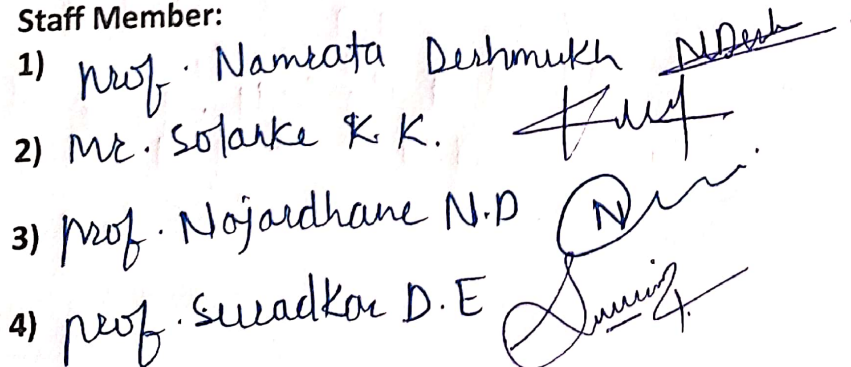 Staff Member:
1) Prof. Namrata Deshmukh NDesh
2) Mr. Solanke K. K.
3) Prof. Nojardhane N.D
4) Prof. Suradkar D.E